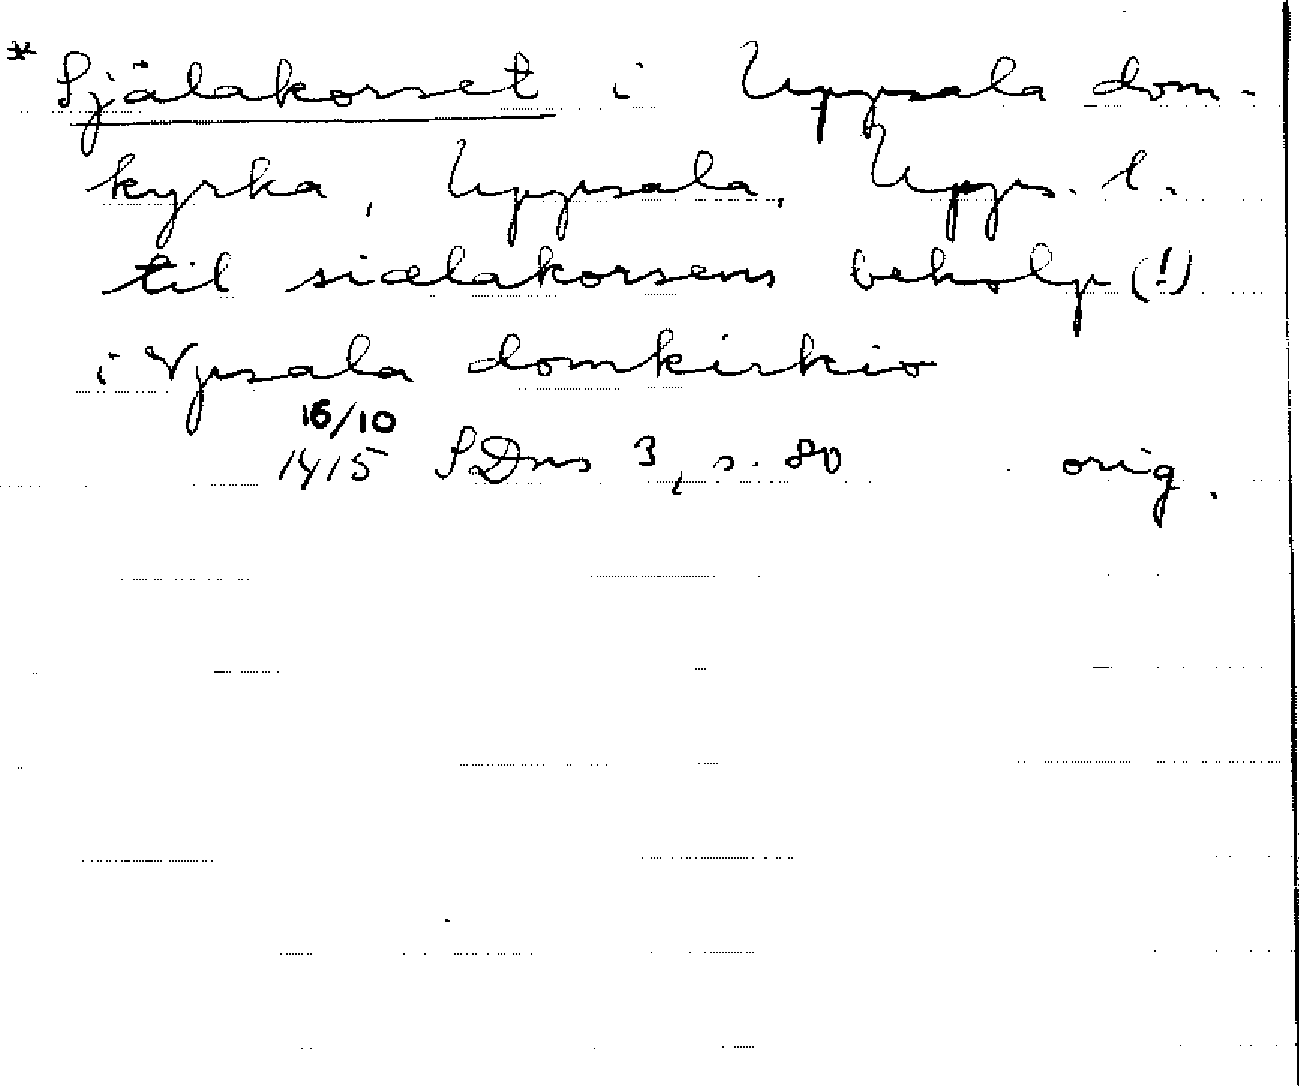 * Själakorset i Uppsala dom-
kyrka, Uppsala, Upps. l.
til siælakorsens beholp (!)
i Vpsala domkirkio
16/10
1415 SDns 3, s. 80 orig.